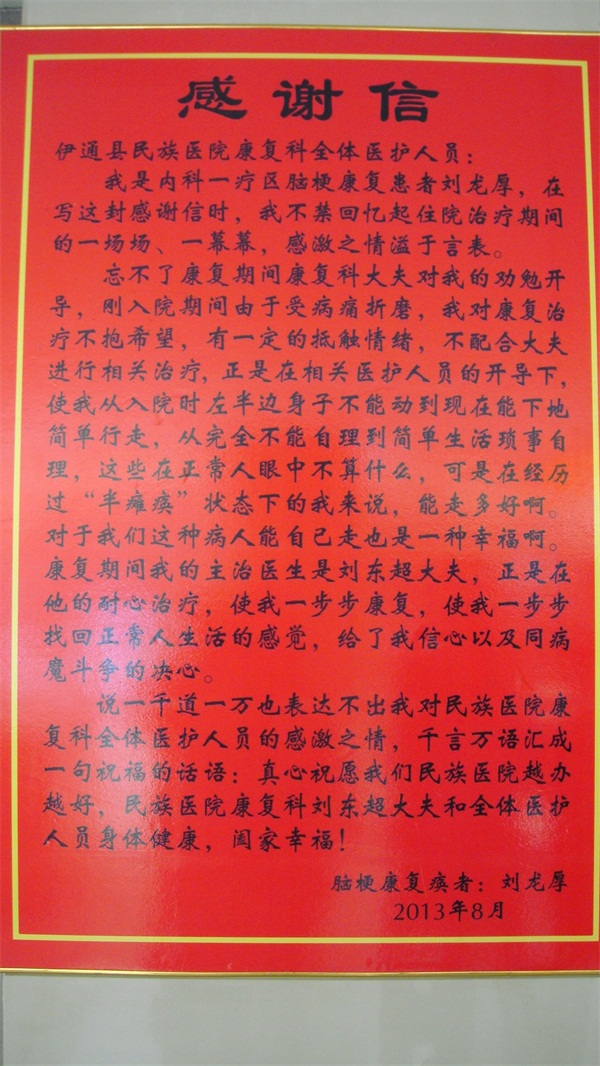 感谢信
伊通县民族医院康复科全体医护人员：
我是内科一疗区脑梗康复患者刘龙厚，在
写这封感谢信时，我不禁回忆起住院治疗期间
的一场场、一幕幕，感激之情溢于言表。
忘不了康复期间康复科大夫对我的劝勉开
导，刚入院期间由于受病痛折磨，我对康复治
疗不抱希望，有一定的抵触情绪，不配合大夫
进行相关治疗，正是在相关医护人员的开导下，
使我从入院时左半边身子不能动到现在能下地
简单行走，从完全不能自理到简单生活琐事自
理，这些在正常人眼中不算什么，可是在经历
过“半瘫痪”状态下的我来说，能走多好啊。
对于我们这种病人能自己走也是一种幸福啊。
康复期间我的主治医生是刘东超大夫，正是在
他的耐心治疗，使我一步步康复，使我一步步
找回正常人生活的感觉，给了我信心以及同病
魔斗争的决心。
说一千道一万也表达不出我对民族医院康
复科全体医护人员的感激之情，千言万语汇成
一句祝福的话语：真心祝愿我们民族医院越办
越好，民族医院康复科刘东超大夫和全体医护
人员身体健康，阖家幸福！
脑梗康复痪者：刘龙厚
2013年8月